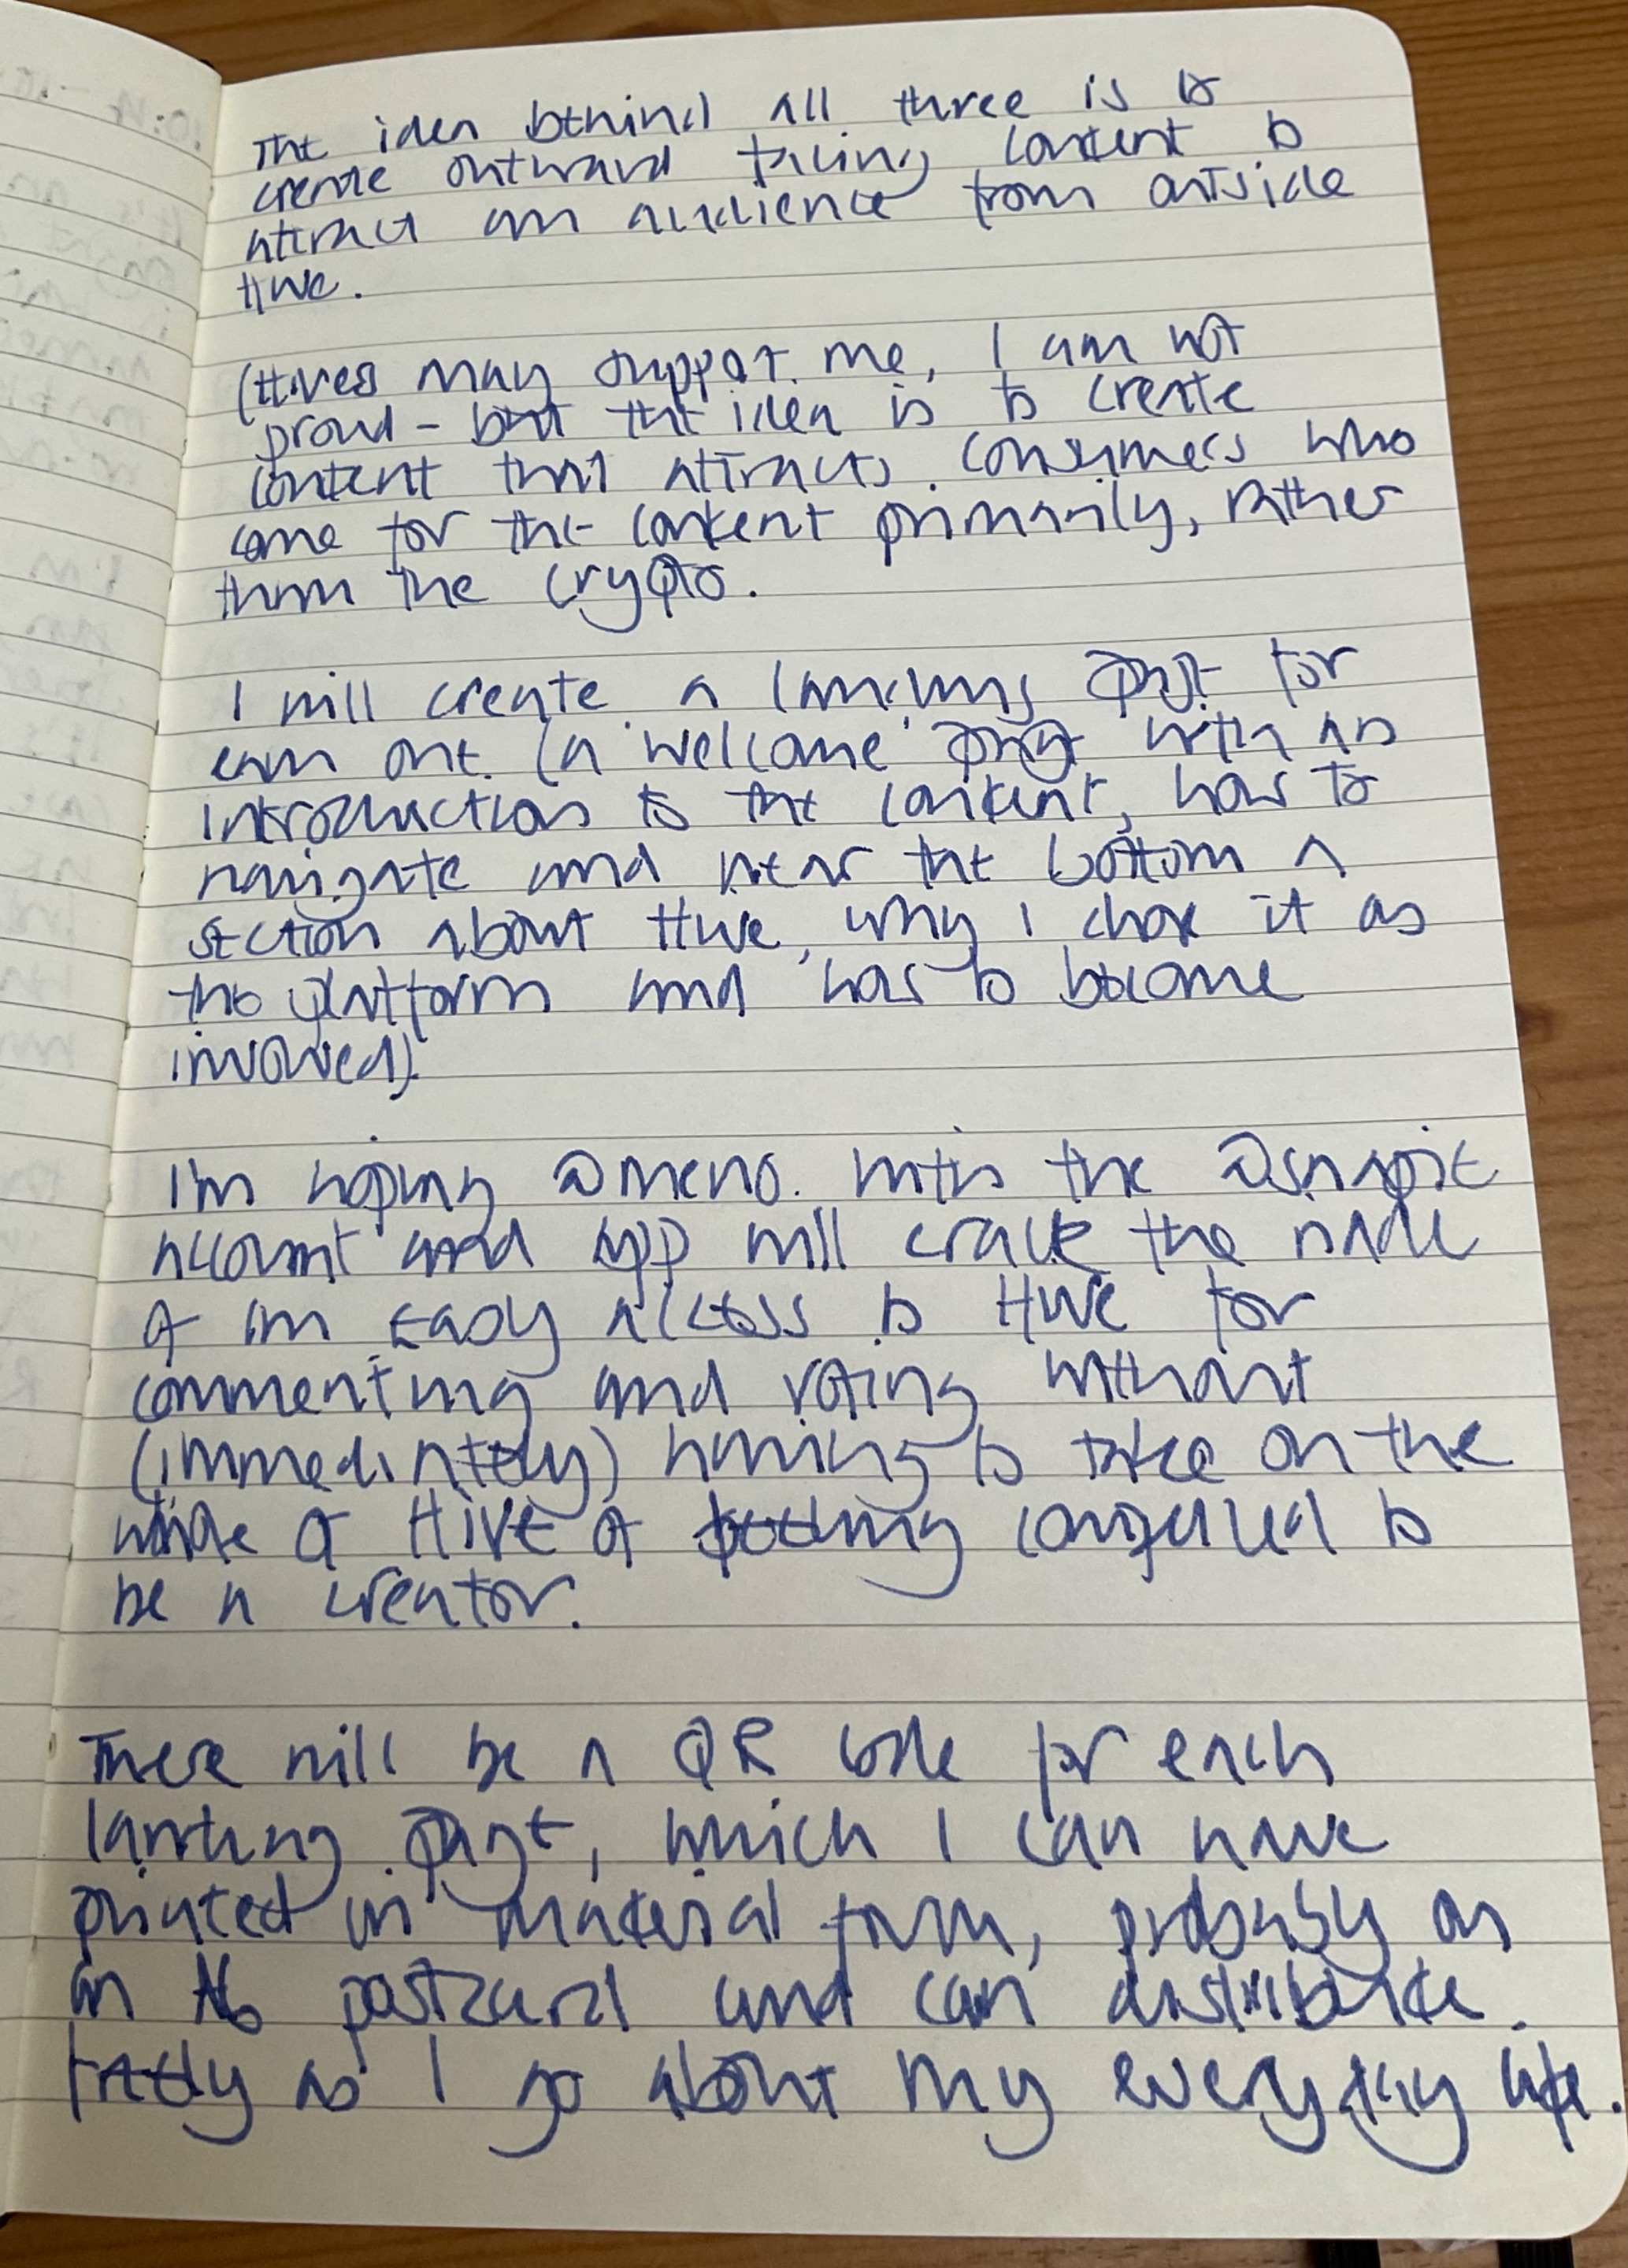 The idea behind all three is to
create outward facing content to
attract an audience from outside
Hive.
(Hivers may support me, I am not
proud - but the idea is to create
content that attracts consumers who
come for the content primarily, rather
than the crypto.
I will create a landing page for
each one. (a 'welcome' page with an
introduction to the content, how to
navigate and near the bottom a
section about Hive, why I chose it as
the platform and how to become
involved).
I'm hoping @meno with the @snapie
account and app will crack the
of an easy access to Hive for
commenting and voting without
(immediately) having to take on the
whole of Hive or feeling compelled to
be a creator.
There will be a QR code for each
landing page, which I can have
printed in material form, probably as
an A6 postcard and can distribute
freely as I go about my everyday life.